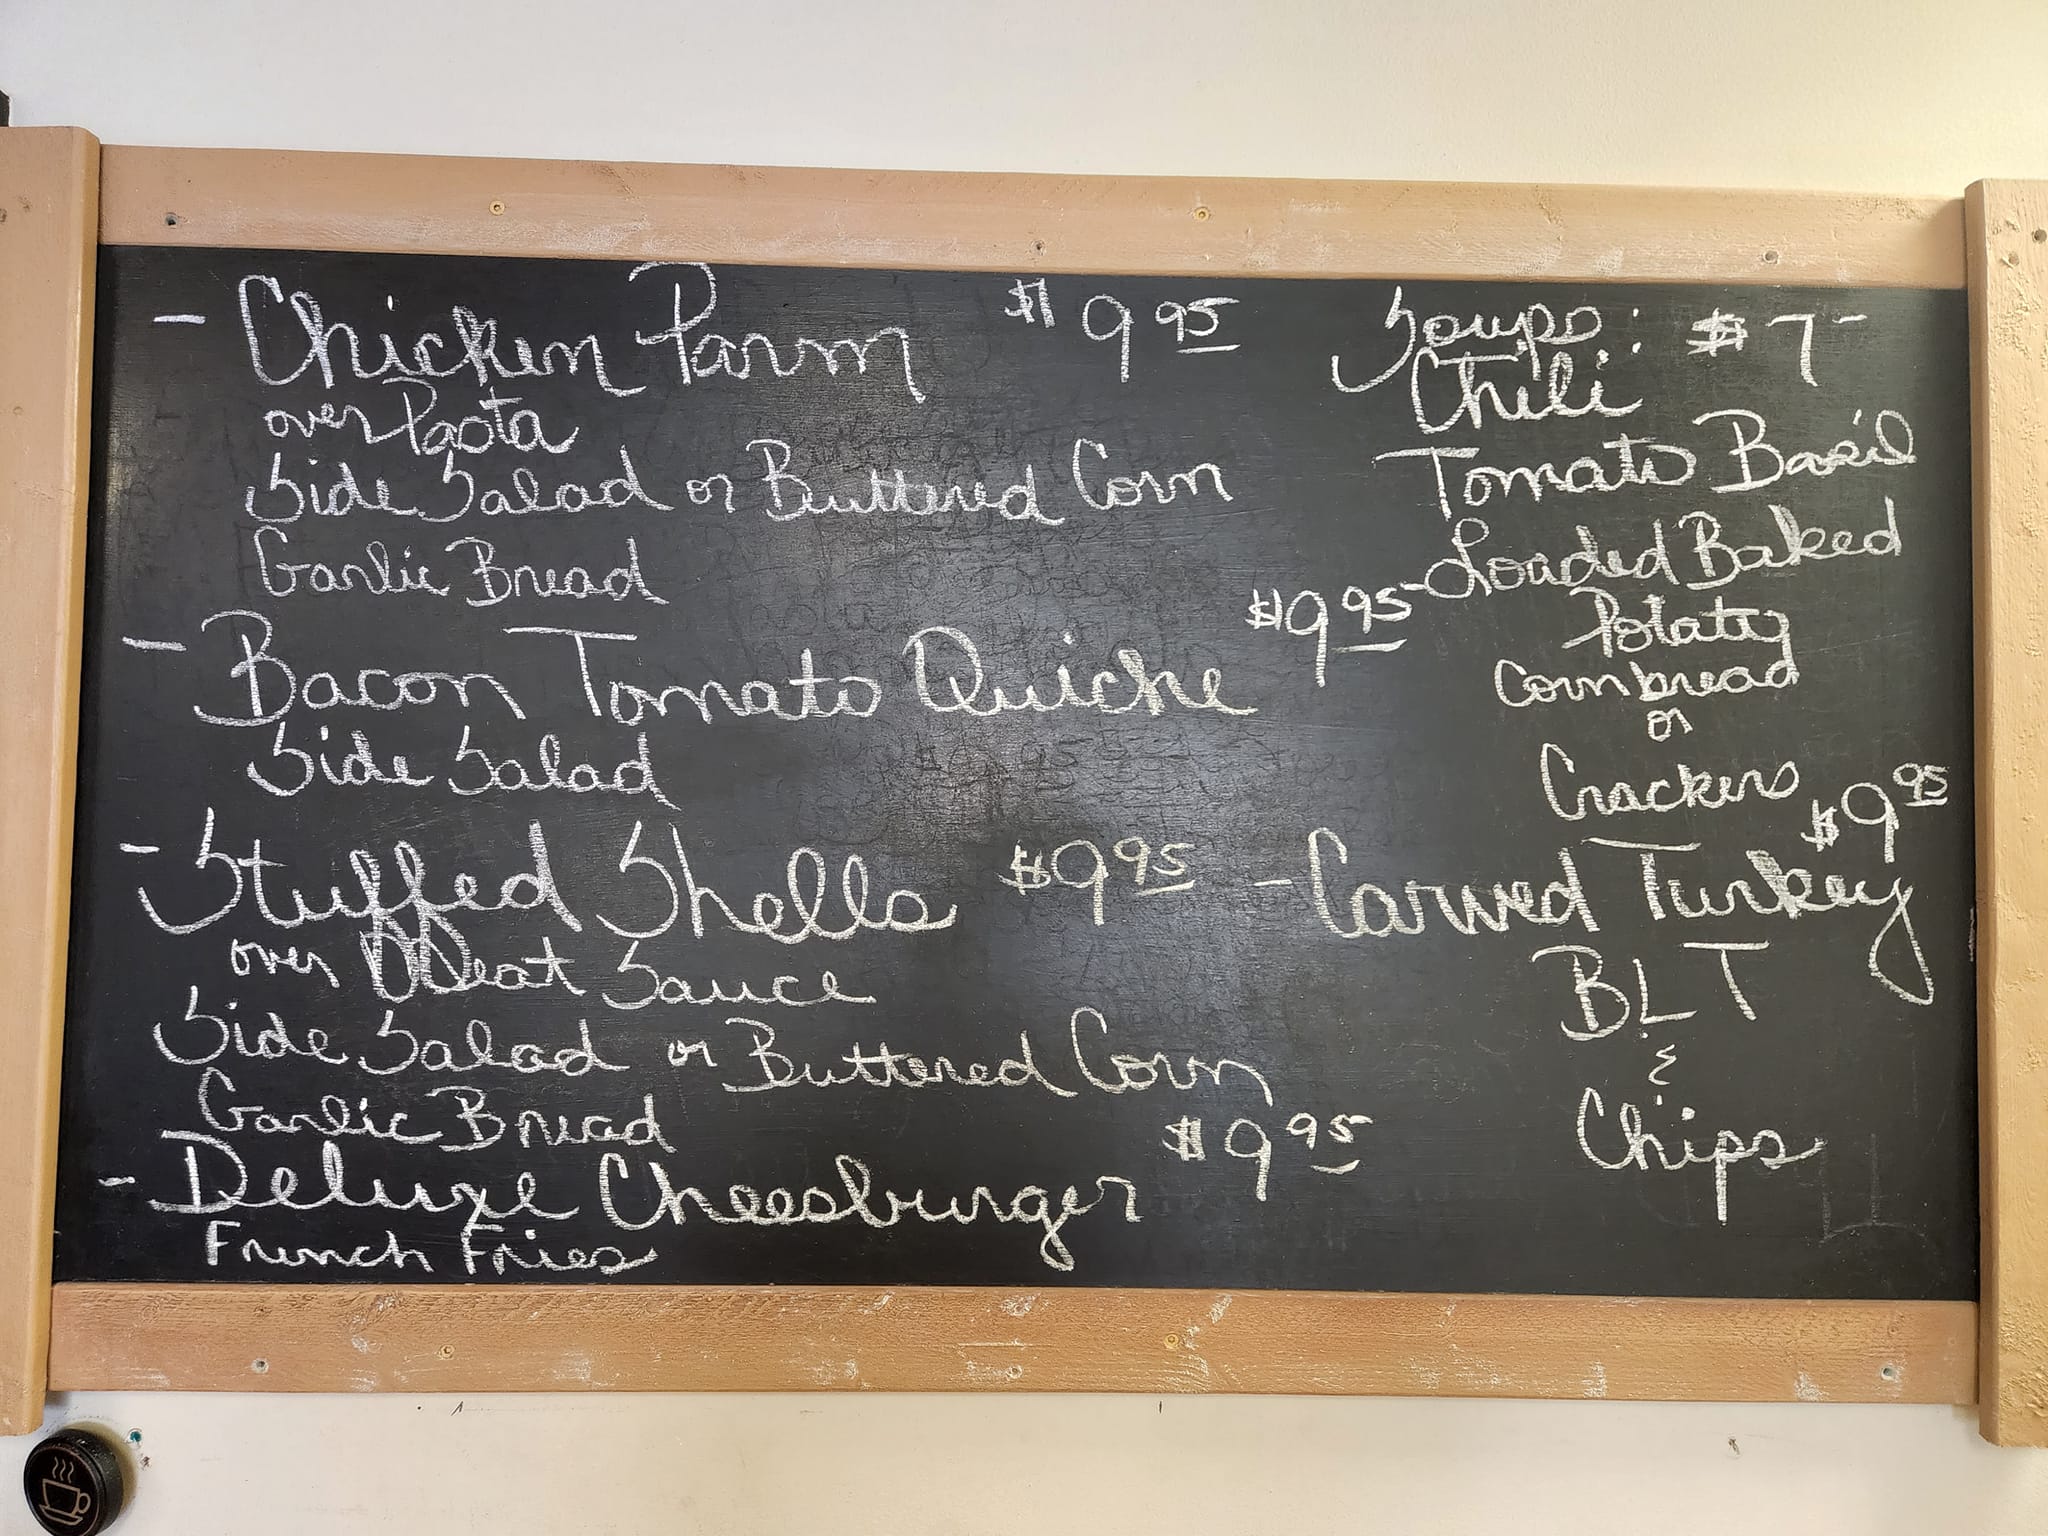 - Chicken Parm $9.95
over Pasta
Side Salad or Buttered Corn
Garlic Bread
- Bacon Tomato Quiche $9.95
Side Salad
- Stuffed Shells $9.95
over Meat Sauce
Side Salad or Buttered Corn
Garlic Bread
- Deluxe Cheesburger $9.95
French Fries
Soups: $7-
Chili
Tomato Basil
-Loaded Baked
Potato
Cornbread
or
Crackers
- Carved Turkey $9.95
BLT
&
Chips